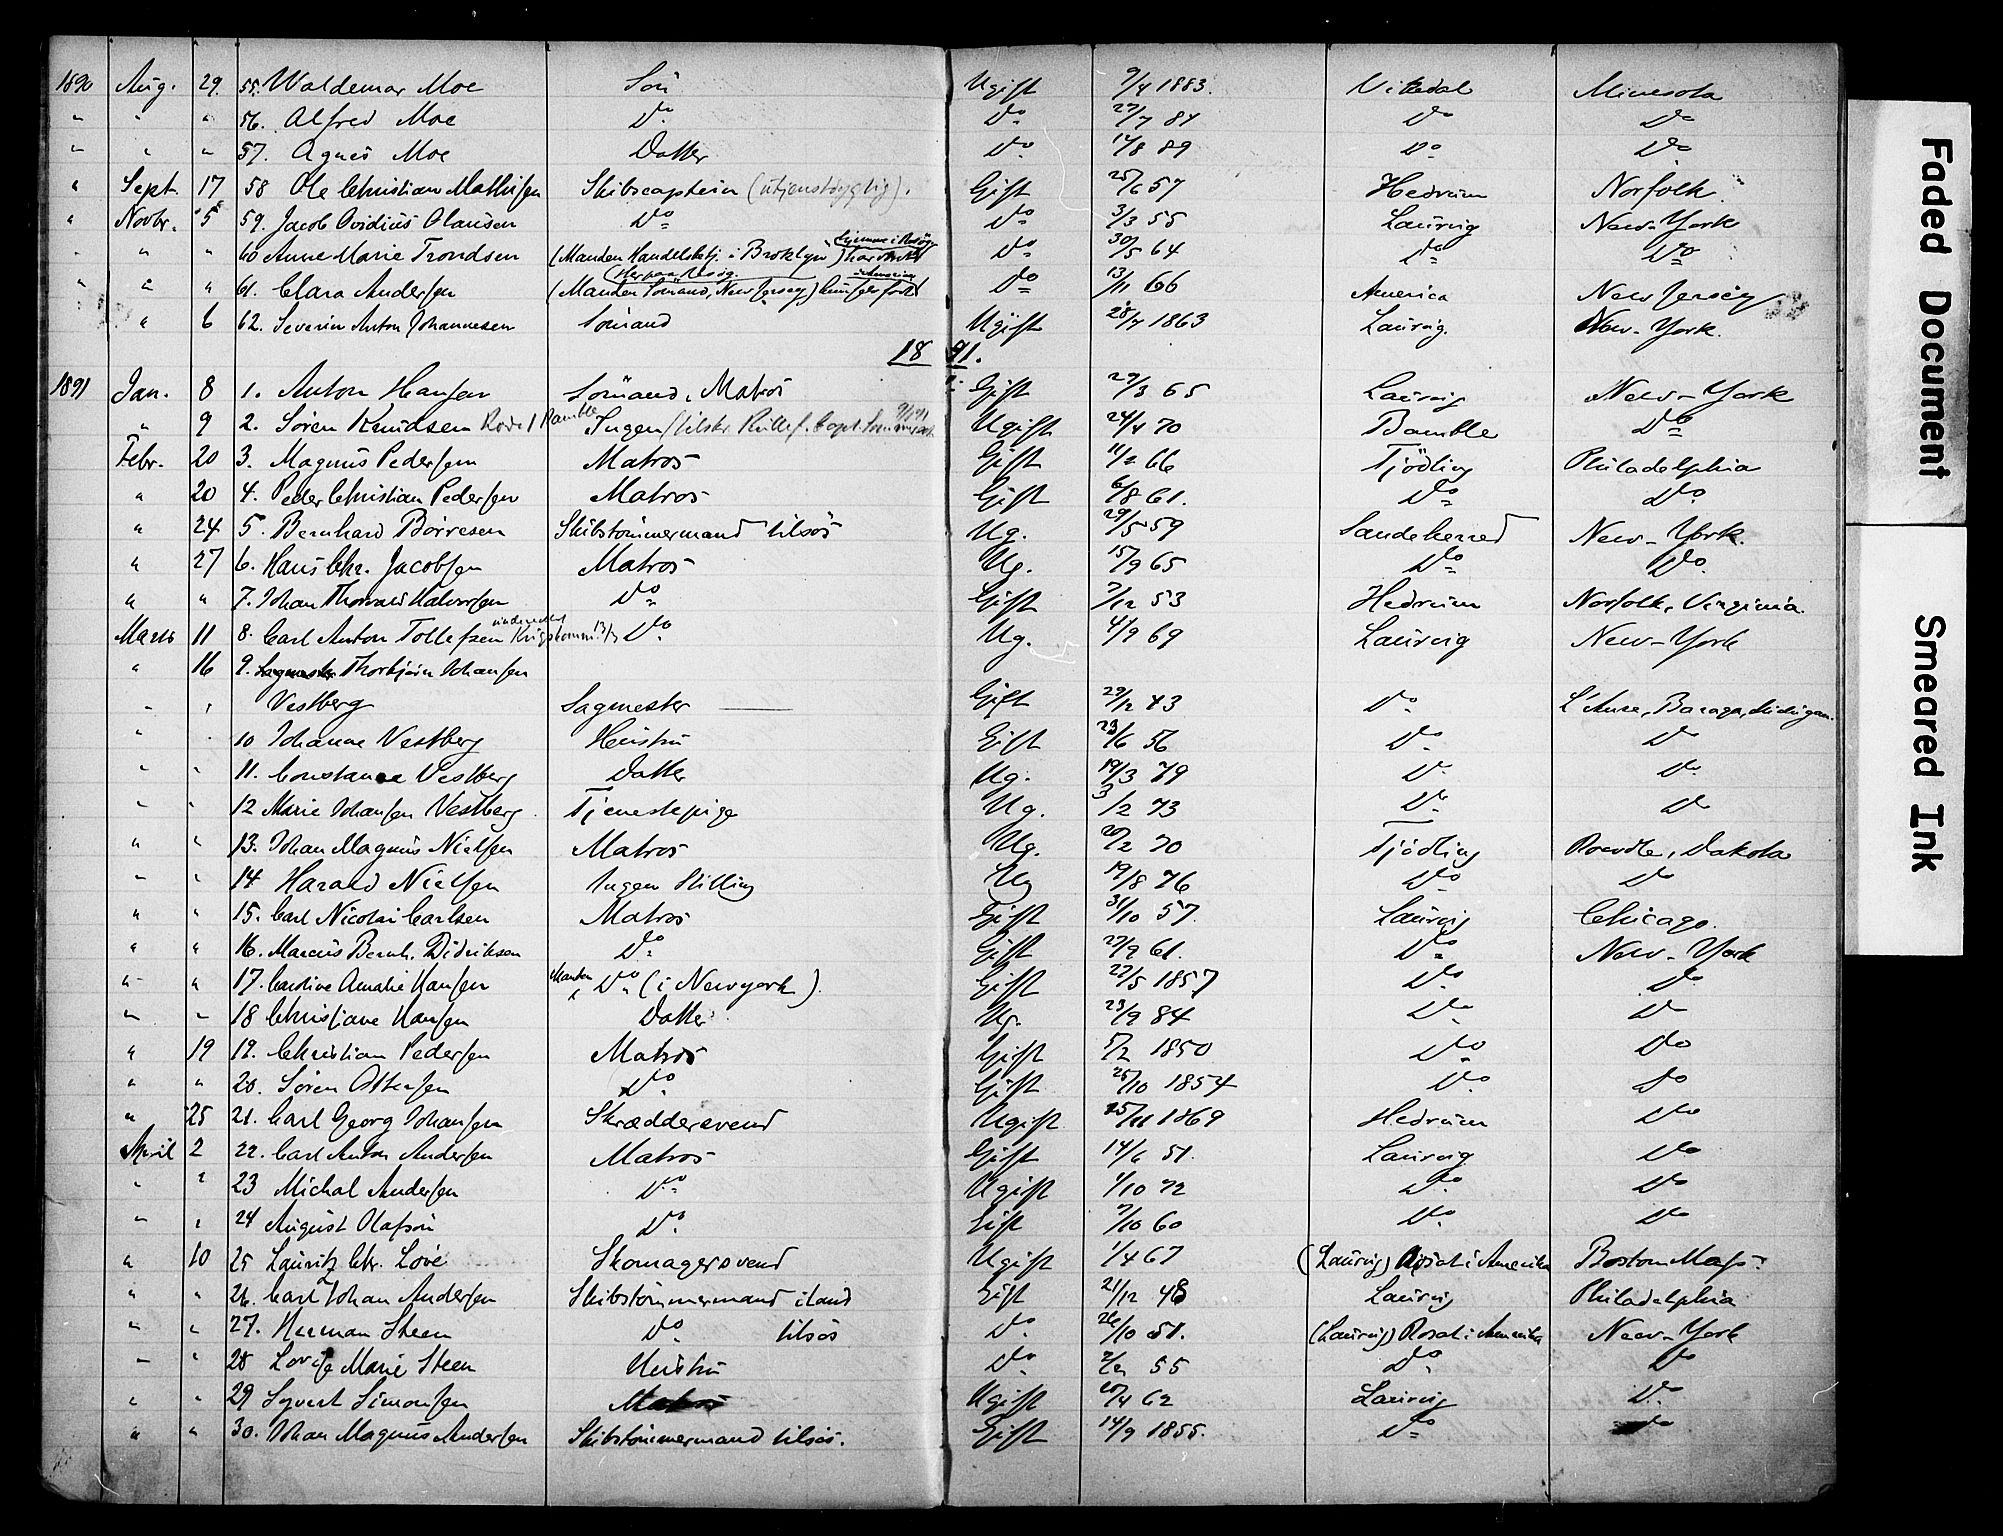 1890 Aug. 29. 55. Waldemar Moe Sön Ugift 9/4 1883. Vikedal Minesota
" " " 56. Alfred Moe Do Do 27/7 84 Do Do
" " " 57. Agnes Moe Datter Do 14/8 89 Do Do
" Sept. 17 58 Ole Christian Mathisen Skibscaptein (utjenstdygtig). Gift 25/6 57 Hedrum Norfolk.
" Novbr. 5 59. Jacob Ovidius Olausen Do Do 3/3 55 Laurvig New-York
" " " 60 Anne Marie Trondsen (Manden Handelsbtj. i Broklyn) Do 30/5 64 Do Do
" " " 61. Clara Andersen (Manden Sömand, New Jersey) Do 13/11 66 America New Jersey
" 6 62. Severin Anton Johannesen Sömand Ugift 28/7 1863 Laurvig. New-York.
1891.
1891 Jan. 8 1. Anton Hansen Sömand, Matros Gift 29/3 65 Laurvig New-York
" 9 2. Søren Knudsen Ingen Ugift 24/4 70 Bamble Do
Febr. 20 3. Magnus Pedersen Matros Gift 11/2 66 Tjödling Philadelphia
" 20 4. Peder Christian Pedersen Matros Gift 6/8 61. Do Do
" 24 5. Bernhard Börresen Skibstömmermand tilsös Ug. 29/5 59 Sandeherred New-York.
" 27 6. Hans Chr. Jacobsen Matros Ug. 15/9 65 Do Do
" " 7. Johan Thorvald Halvorsen Do Gift 7/12 53 Hedrum Norfolk, Virginia.
Marts 11 8. Carl Anton Tollefsen Do Ug. 4/9 69 Laurvig New-York
" 16 9. Thorbjørn Johansen
" " Vestberg Sagmester Gift 29/12 43 Do L'Anse, Baraga, Michigan.
" " 10 Johanne Vestberg Hustru Gift 23/6 56 Do Do
" " 11. Constance Vestberg Datter Ug. 19/3 79 Do Do
" " 12 Marie Johansen Vestberg Tjenestepige Ug. 3/2 73 Do Do
" " 13. Johan Magnus Nielsen Matros Ug. 20/2 70 Tjödling Dakota
" " 14 Harald Nielsen Ingen Stilling Ug 19/8 76 Do Do
" " 15. Carl Nicolai Carlsen Matros Gift 31/10 57. Laurvig Chicago.
" " 16. Marcus Bernh. Didriksen Do Gift 27/9 61. Do New-York
" " 17. Caroline Amalie Hansen Manden Do (i Newyork). Gift 27/5 1857 Do Do
" " 18 Christiane Hansen Datter Ug. 23/9 84 Do Do
" 19 19. Christian Pedersen Matros Gift 5/2 1850 Do Do
" " 20. Søren Ottersen Do Gift 25/10 1854 Do Do
" 25 21. Carl Georg Johansen Skræddersvend Ugift 25/11 1869 Hedrum Do
April 2 22. Carl Anton Andersen Matros Gift 14/6 51. Laurvig Do
" " 23 Michal Andersen Do Ugift 1/10 72 Do Do
" " 24 August Olafsön Do Gift 7/10 60 Do Do
" 10 25 Lauritz Chr. Löve Skomagersvend Ugift 1/4 67 (Laurvig) Bosat i Amerika Boston Mass.
" " 26. Carl Johan Andersen Skibstömmermand iland Gift 21/12 48 Laurvig Philadelphia
" " 27. Herman Steen Do tilsös Do 26/10 51. (Laurvig) Bosat i Amerika New-York
" " 28 Lovise Marie Steen Hustru Do 2/2 55 Do Do
" " 29 Syvert Simonsen Matros Ugift 10/4 62 Laurvig Do
" " 30. Johan Magnus Andersen Skibstömmermand tilsös. Gift 14/9 1855. Do Do
Faded Document
Smeared Ink